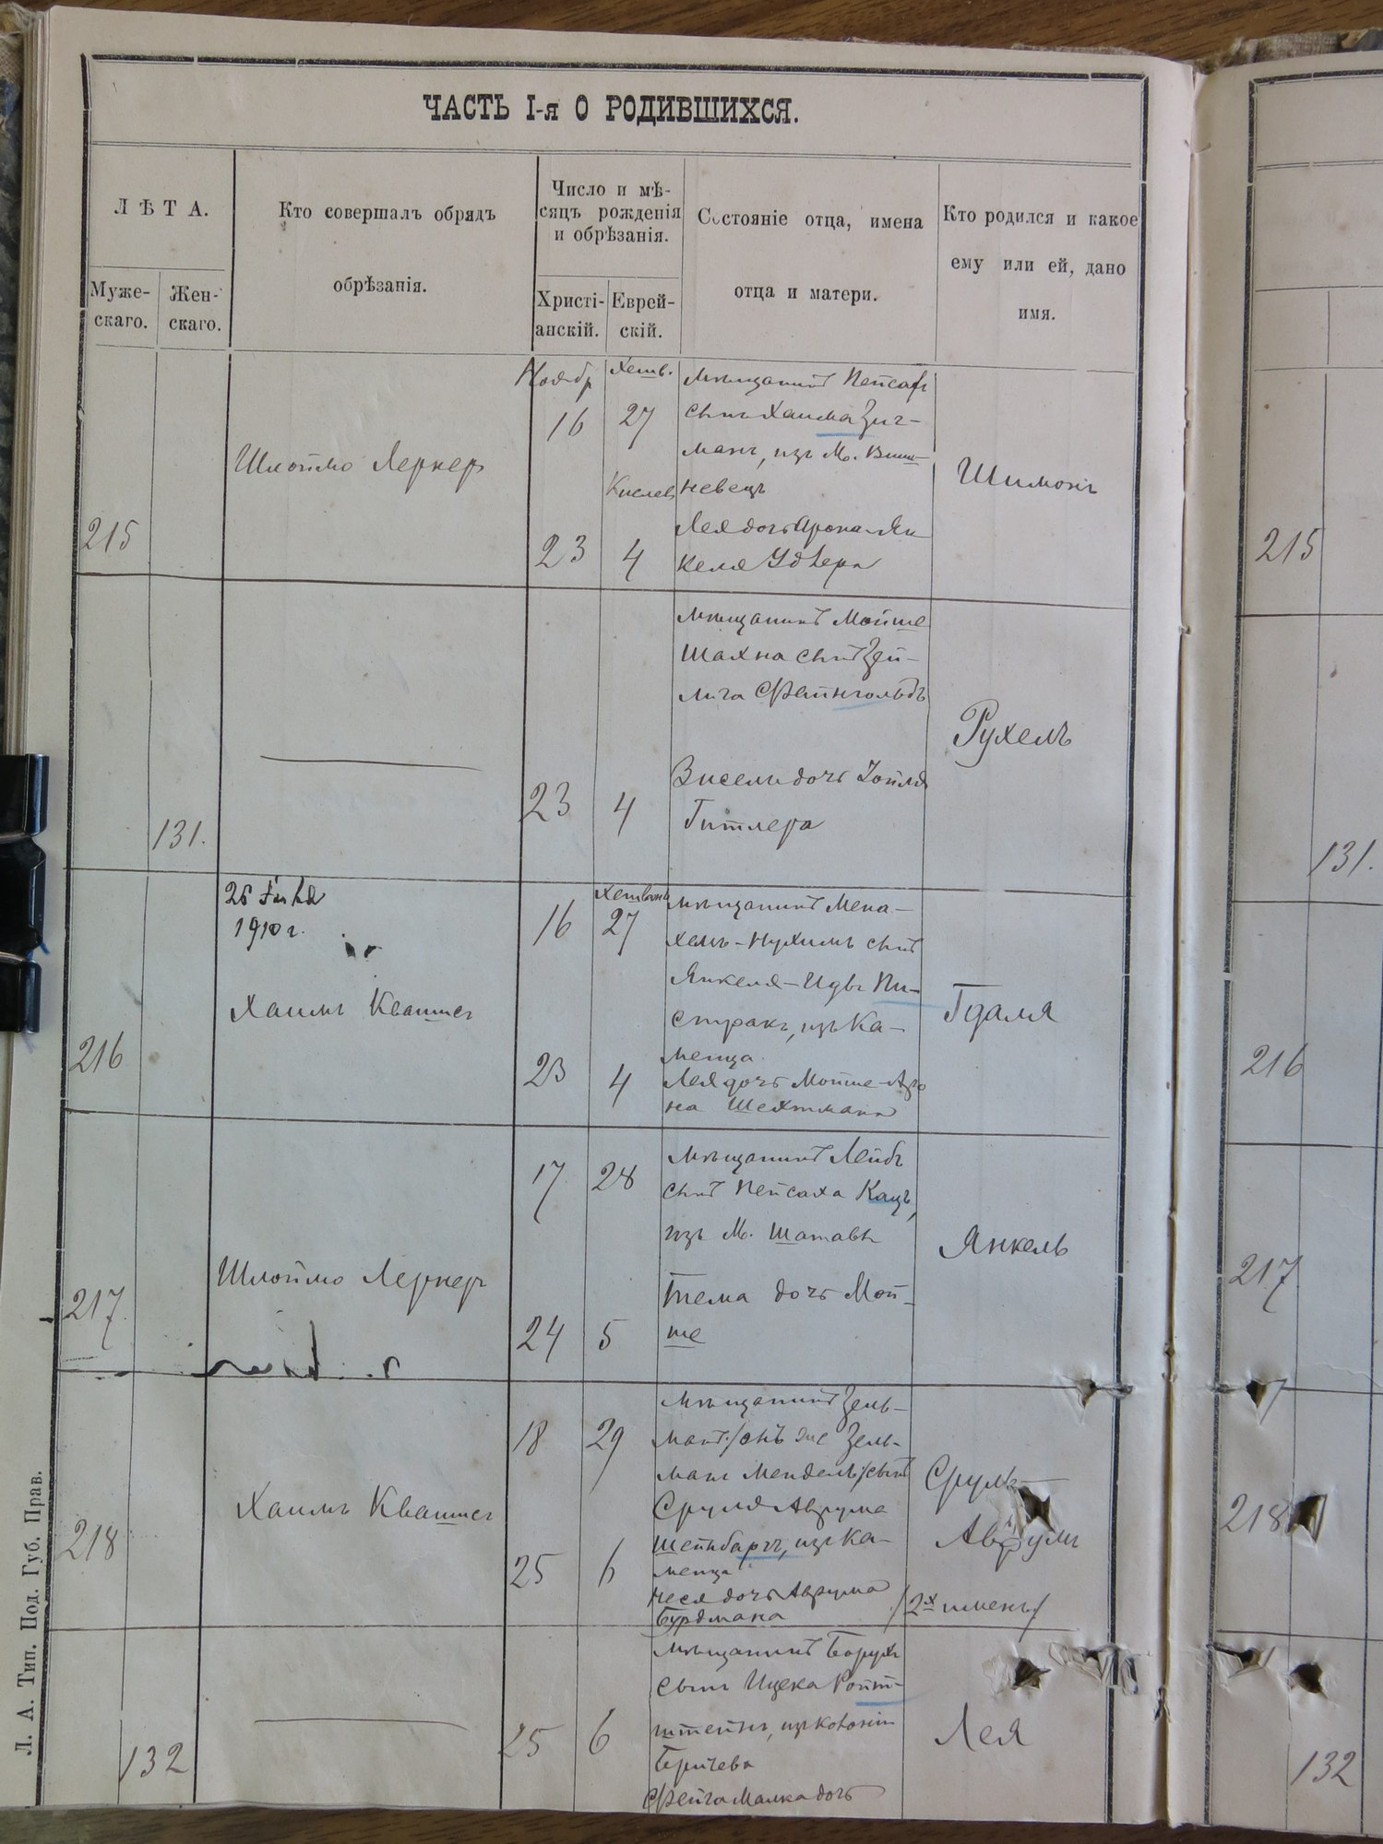 ЧАСТЬ I-я О РОДИВШИХСЯ.
ЛѢТА.
Муже-
скаго.
Жен-
скаго.
Кто совершалъ обрядъ
обрѣзанія.
Число и мѣ-
сяцъ рожденія
и обрѣзанія.
Христі-
анскій.
Еврей-
скій.
Состояніе отца, имена
отца и матери.
Кто родился и какое
ему или ей, дано
имя.
215
Шлоймо Лернеръ
Ноябр
16
23
Хешв.
27
Кислев
4
Мѣщанинъ Пейсах
сынъ Хаима Зиг-
манъ, изъ М. Виш-
невецъ
Лея дочь Арона-Ян
келя
Шимонъ
215
131.
23
4
Мѣщанинъ Мойше
Шахна сынъ Зей-
лига Файнгольдъ
дочь Іойля
Гитлера
Рухель
131.
216
1910 г.
Хаимъ Квашис
16
23
27
4
Мѣщанинъ Мена-
хемъ-Нухимъ сынъ
Янкеля-Идъ Пи-
стракъ, изъ Ка-
менца
Лея дочь Мойше-Аро
на Шехтмана
Гдаля
216
217
Шлоймо Лернеръ
17
24
28
5
Мѣщанинъ Лейбъ
сынъ Пейсаха Кацъ,
изъ М. Шатавы
Тема дочь Мой-
ше
Янкель
217
218
Хаимъ Квашис
18
25
29
6
Мѣщанинъ Зель-
манъ /онъ же Зель-
манъ Мендель/ сынъ
Сруля Аврума
Шейнбаргъ, изъ Ка-
менца
Неся дочь Аврума
Бурдмана
Сруль
Аврумъ
/2х именъ/
218
132
25
6
Мѣщанинъ Борухъ
сынъ Ицека Ройт-
штейнъ, изъ колоніи
Бричева
Фейга Малка дочь
Лея
132
Л. А. Тип. Под. Губ. Прав.